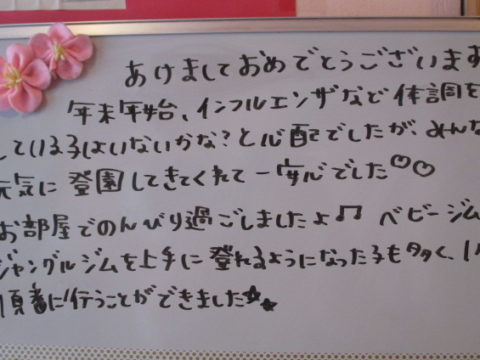 あけましておめでとうございます
年末年始、インフルエンザなど体調を
している子はいないかな?と心配でしたが、みんな
元気に登園してきてくれて一安心でした♡♡
お部屋でのんびり過ごしましたよ♫ ベビージム
ジャングルジムを上手に登れるようになった子も多く、
順番に行うことができました☆